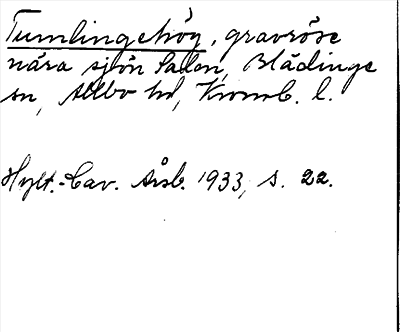 Tumlingehög, gravröse
nära sjön Salen, Blädinge
sn, Allbo hd, Kronob. l.
Hylt.-Cav. Årsb. 1933, s. 22.